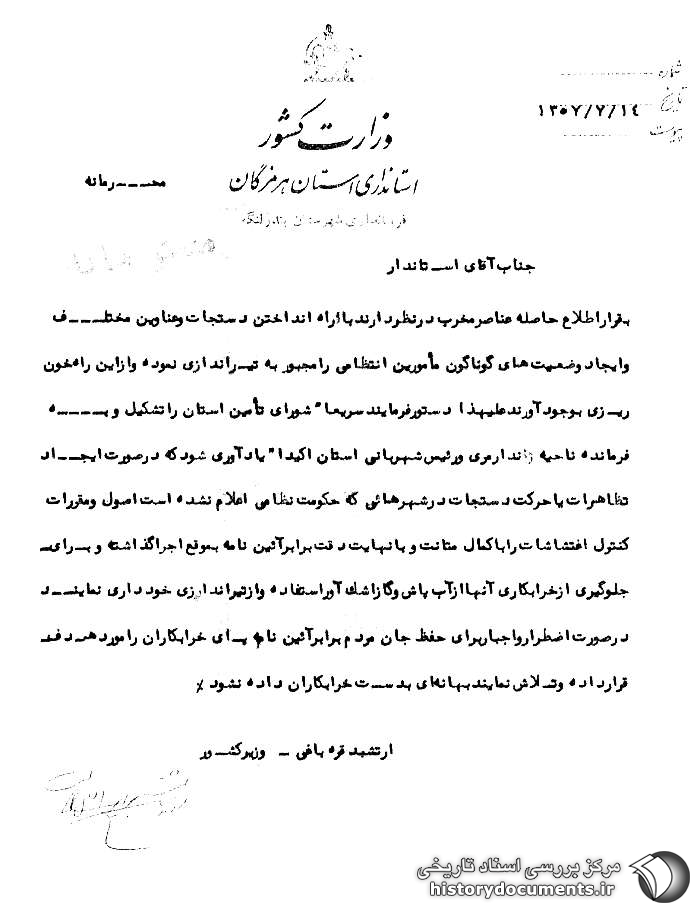 شماره
تاریخ ١٣٥٧/٧/١٤
پیوست
وزارت کشور
استانداری استان هرمزگان
محــرمانه
فرمانداری شهرستان بندرلنگه
جناب آقای استاندار
بقرار اطلاع حاصله عناصر مخرب در نظر دارند با راه انداختن دستجات و عناوین مختلــف
و ایجاد وضعیت های گوناگون مأمورین انتظامی را مجبور به تیراندازی نموده و از این راه خون
ریزی بوجود آورند علیهذا دستور فرمایند سریعا" شورای تأمین استان را تشکیل و بــه
فرمانده ناحیه ژاندارمری و رئیس شهربانی استان اکیدا" یادآوری شود که در صورت ایجــاد
تظاهرات یا حرکت دستجات در شهرهائی که حکومت نظامی اعلام نشده است اصول و مقررات
کنترل اغتشاشات را با کمال متانت و با نهایت دقت برابر آئین نامه بموقع اجرا گذاشته و برای
جلوگیری از خرابکاری آنها از آب پاش و گاز اشك آور استفاده و از تیراندازی خودداری نماینــد
در صورت اضطرار و اجبار برای حفظ جان مردم برابر آئین نامه پای خرابکاران را مورد هــدف
قرار داده و تلاش نمایند بهانه‌ای بدست خرابکاران داده نشود ٪
ارتشبد قره باغی ـ وزیر کشور
مرکز بررسی اسناد تاریخی
historydocuments.ir